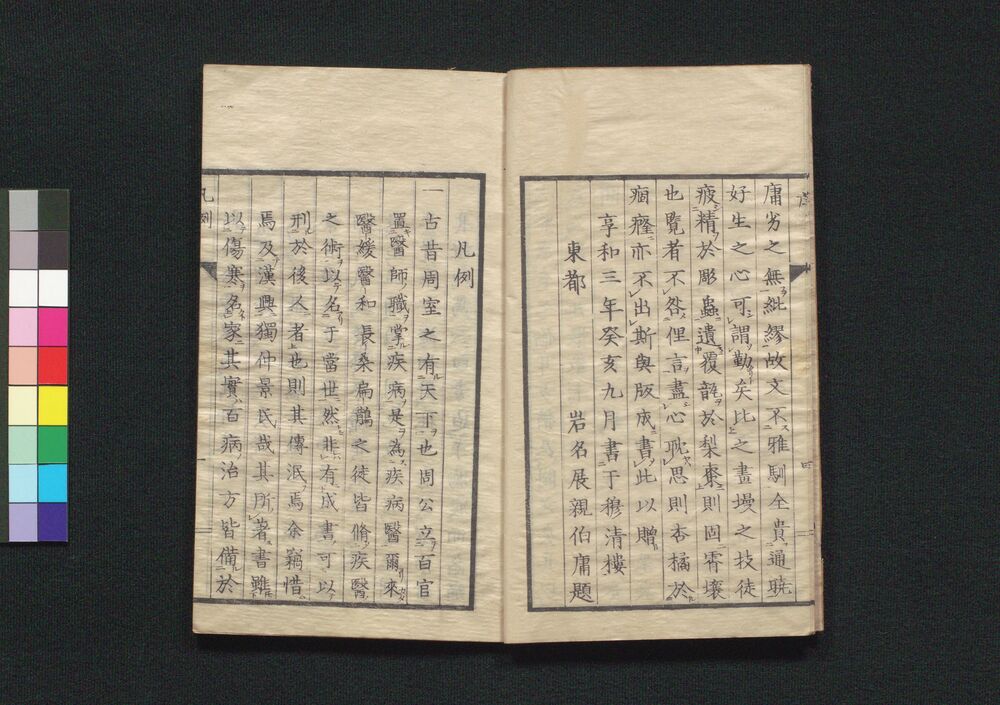 庸劣之無紕繆故文不雅馴全貴通曉
好生之心可謂勤矣比之畫墁之技徒
疲精於彫蟲遺覆瓿於梨棗則固霄壤
也覧者不咎俚言盡心耽思則杏橘於
痼癃亦不出斯與版成書此以贈
享和三年癸亥九月書于穆清樓
東都　岩名展親伯庸題
凡例
一古昔周室之有天下也周公立百官
置醫師職掌疾病是為疾病醫爾來
醫緩醫和長桑扁鵲之徒皆脩疾醫
之術以名于當世然非有成書可以
刑於後人者也則其傳泯焉余竊惜
焉及漢興獨仲景氏哉其所著書雖
以傷寒名家其實百病治方皆備於
凡例